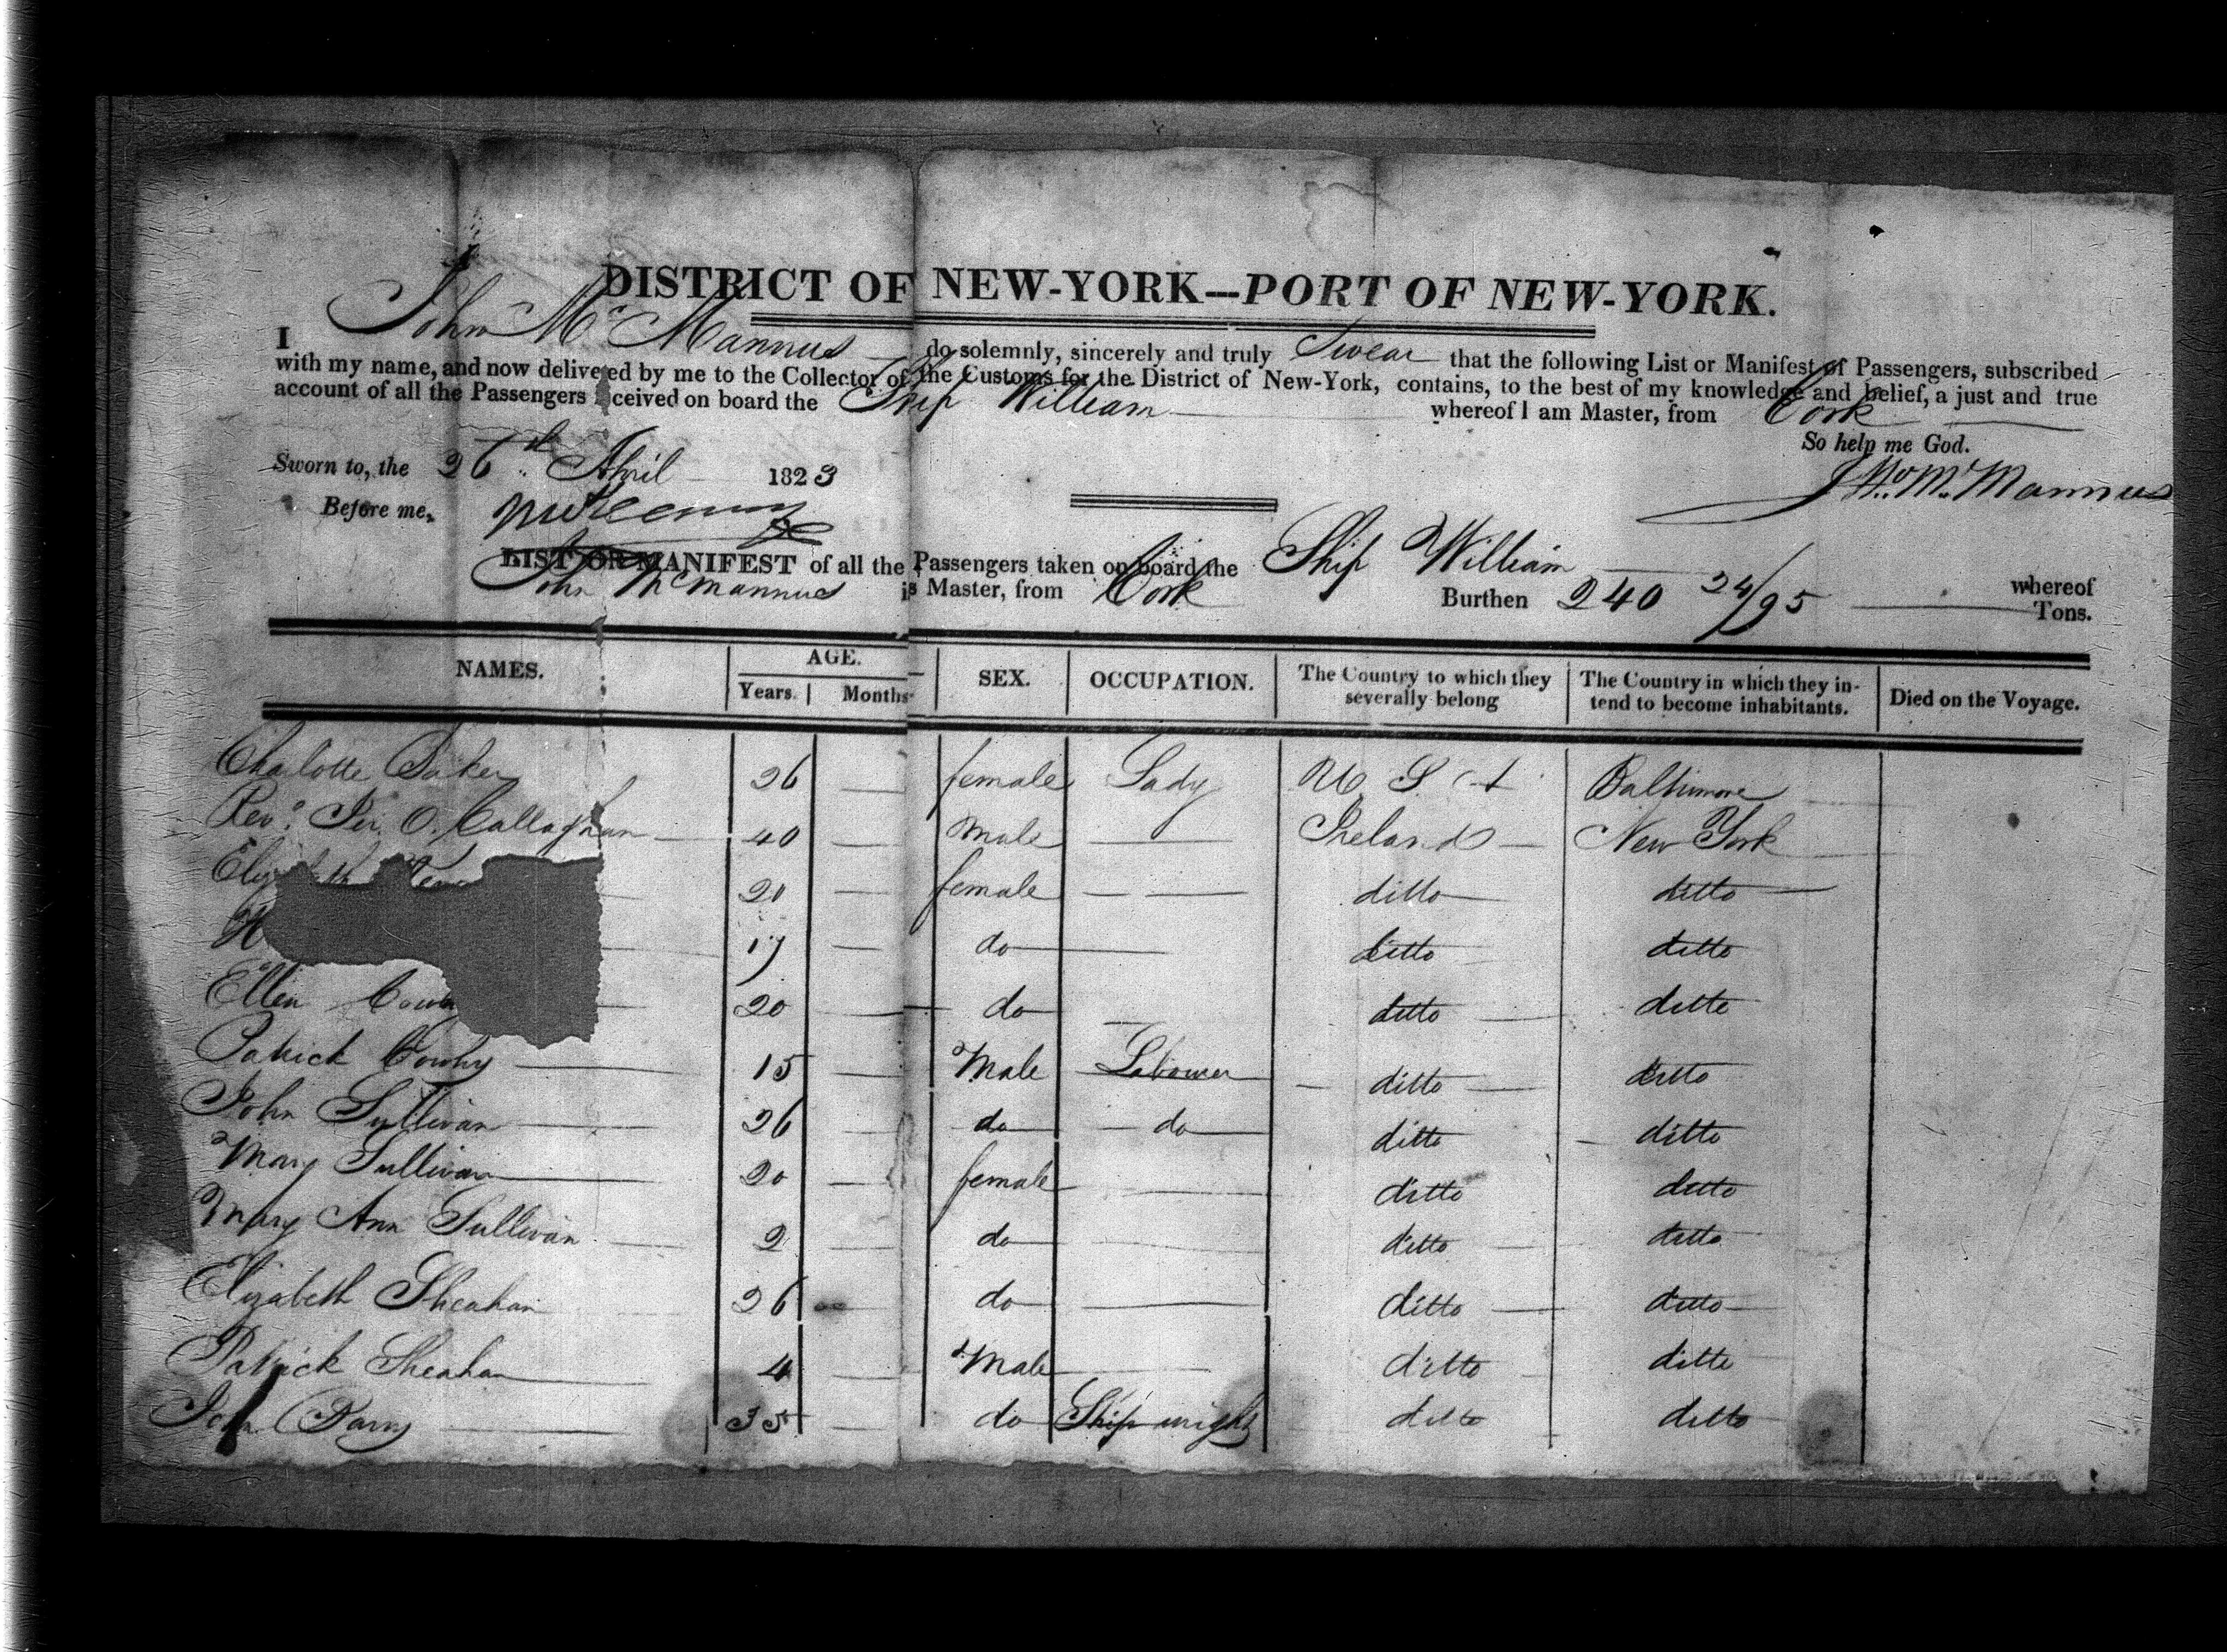 DISTRICT OF NEW-YORK—PORT OF NEW-YORK.
I John McMannus do solemnly, sincerely and truly Swear that the following List or Manifest of Passengers, subscribed
with my name, and now delivered by me to the Collector of the Customs for the District of New-York, contains, to the best of my knowledge and belief, a just and true
account of all the Passengers received on board the Ship William whereof I am Master, from Cork
So help me God.
Sworn to, the 26th April 1823
Jno McMannus
Before me,
LIST OR MANIFEST of all the Passengers taken on board the Ship William whereof
John McMannus is Master, from Cork Burthen 240 24/95 Tons.
NAMES. AGE. SEX. OCCUPATION. The Country to which they severally belong The Country in which they intend to become inhabitants. Died on the Voyage.
Years. Months
Charlotte Baker 26 — female Lady U S A Baltimore
Revd. Jer. O. Callaghan 40 — Male — Ireland New York
20 — female — ditto ditto
17 — do — ditto ditto
Ellen 20 — do — ditto ditto
Patrick 15 — Male Labourer ditto ditto
John Sullivan 26 — do do ditto ditto
Mary Sullivan 20 — female — ditto ditto
Mary Ann Sullivan 2 — do — ditto ditto
Elizabeth Sheahan 26 do — ditto ditto
Patrick Sheahan 4 — Male — ditto ditto
John Barry 35 — do Ship wright ditto ditto